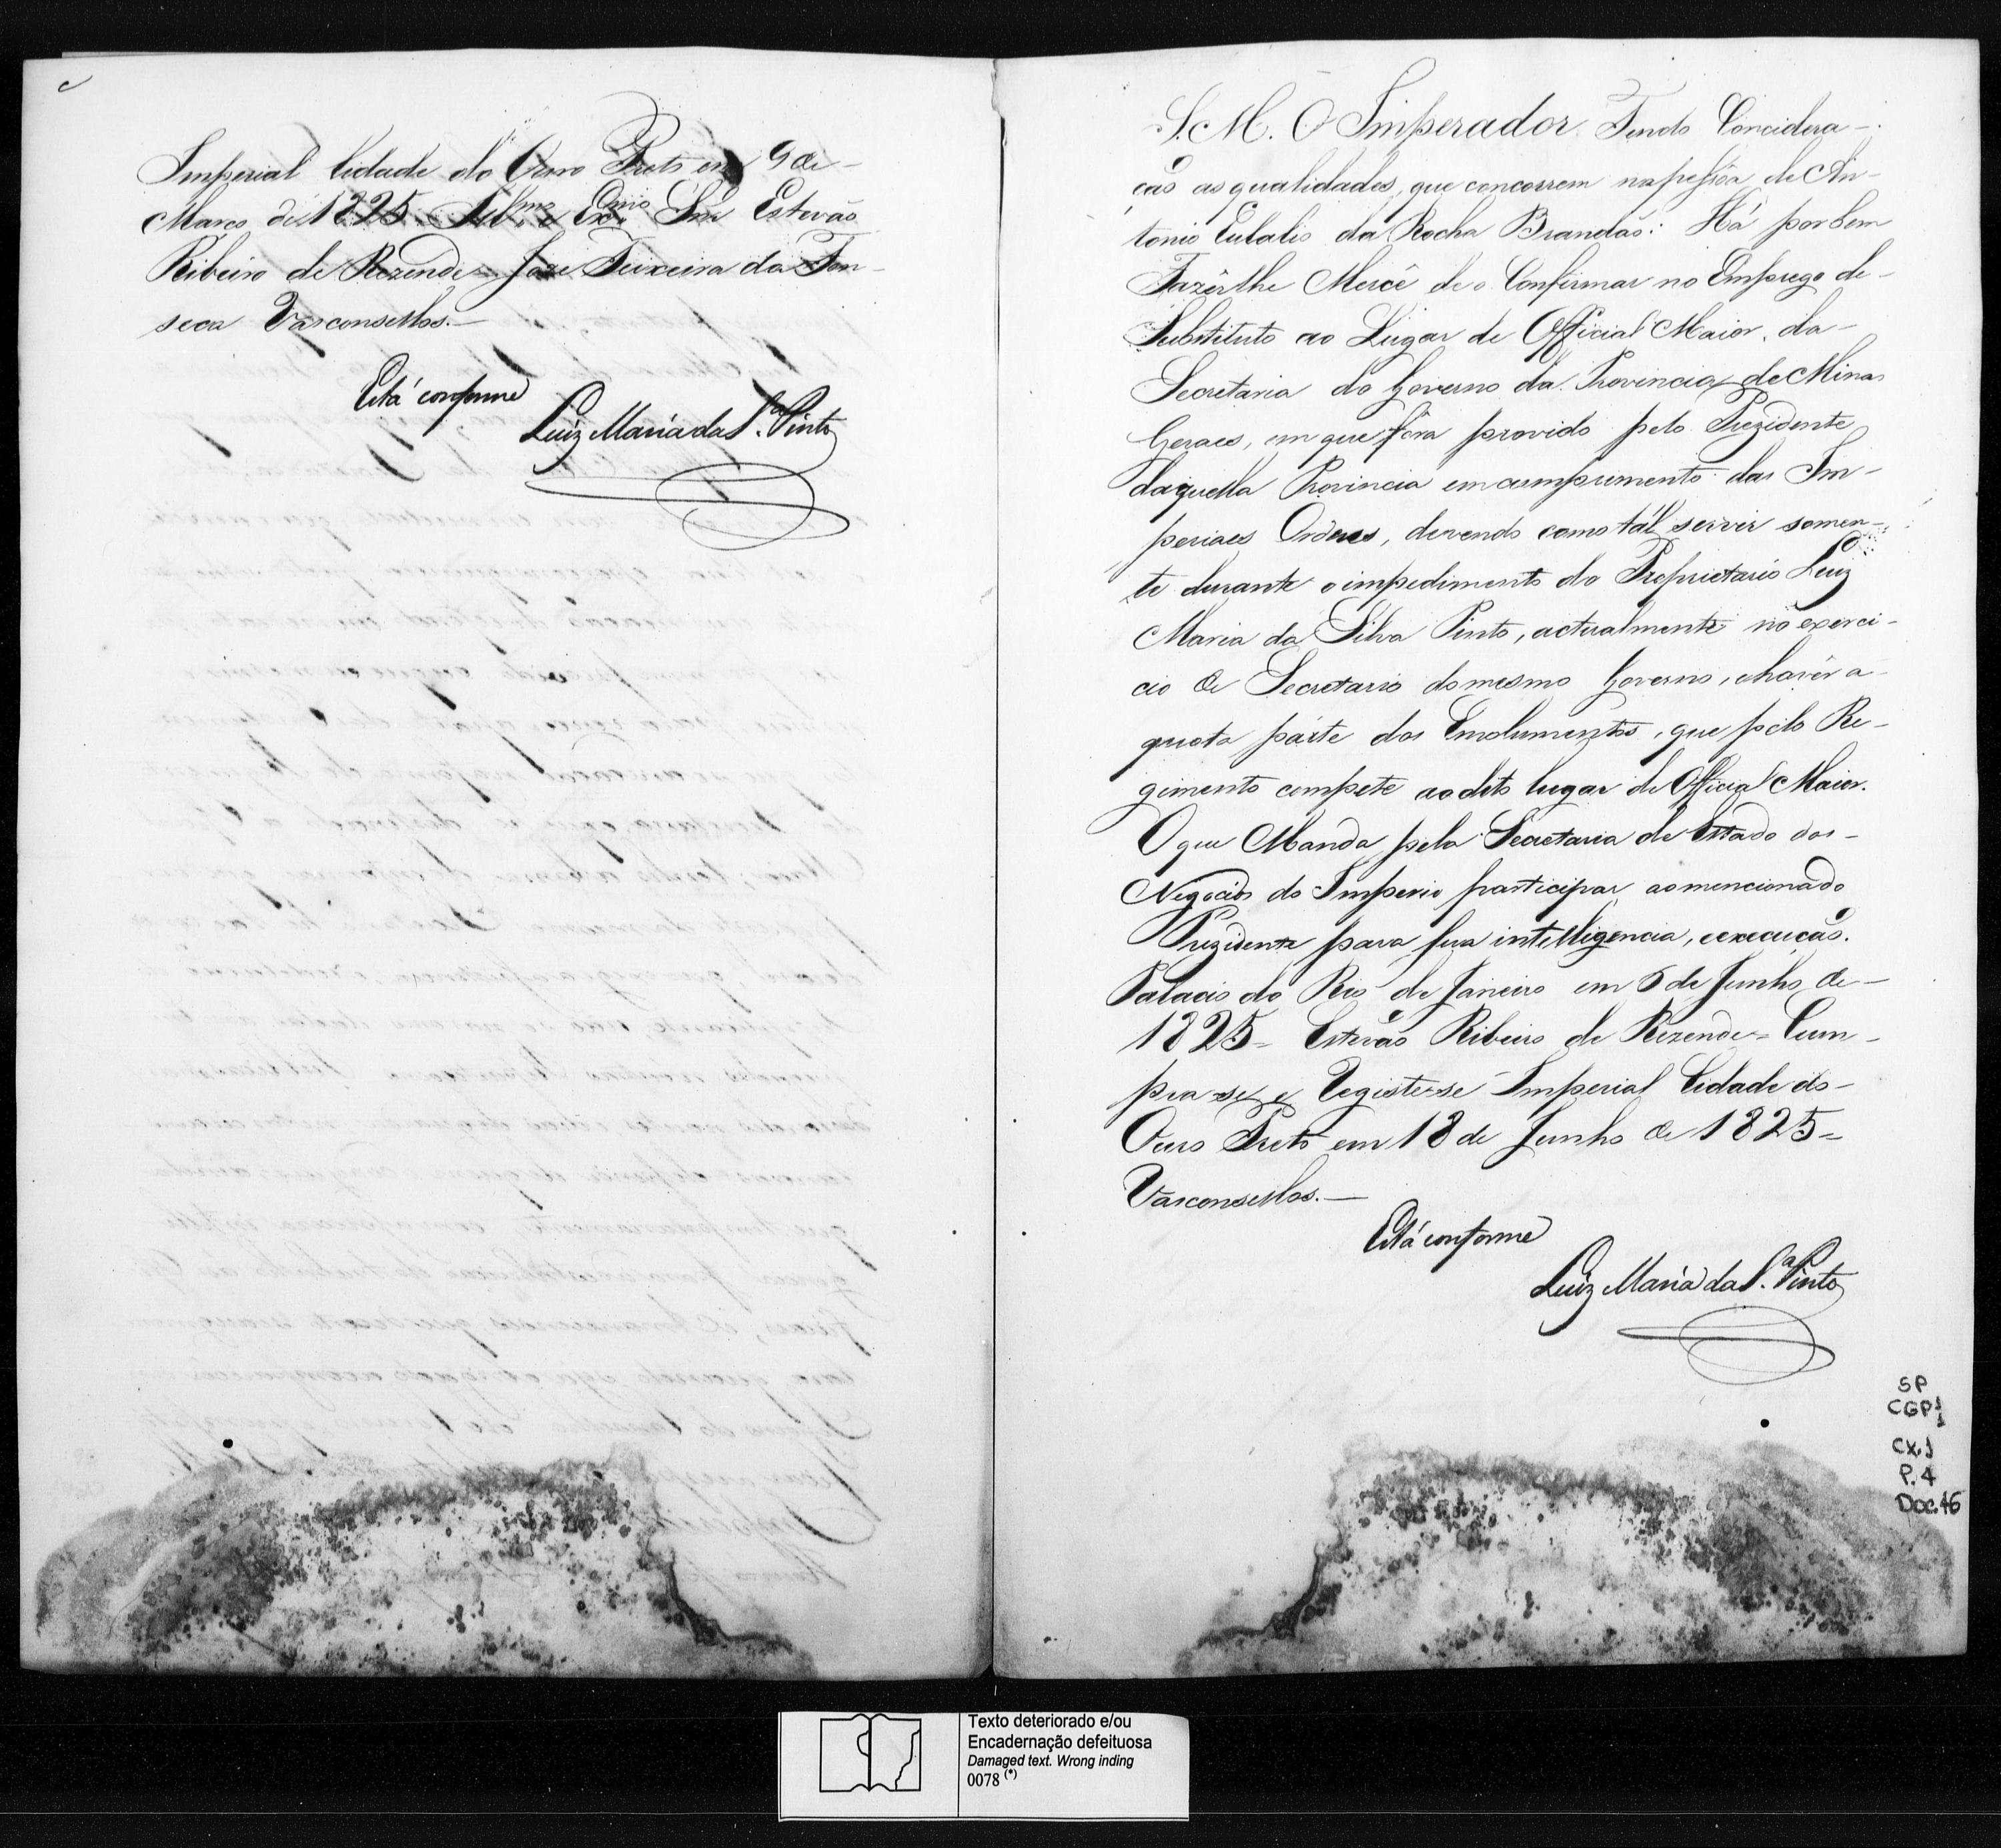 Imperial Cidade do Ouro Preto em 9 de-
Março de 1825. Illmo. e Exmo. Snr. Estevão
Ribeiro de Rezende = Joze Teixeira da Fon-
seca Vasconsellos.-
Está conforme
Luiz Maria da S.ª Pinto
S. M. O Imperador. Tendo Concidera-
ção as qualidades, que concorrem na pessôa de An-
tonio Eulalio da Rocha Brandão: Há por bem
Fazêrlhe Mercê de o Confirmar no Emprego de-
Substituto ao Lugar de Official Maior, da-
Secretaria do Governo da Provincia de Minas
Geraes, em que fôra provido pelo Prezidente
daquella Provincia em cumprimento das Im-
periaes Ordens, devendo como tál servir somen-
te durante o impedimento do Proprietario Luiz
Maria da Silva Pinto, actualmente no exerci-
cio de Secretario do mesmo Governo, e havêr a-
quota párte dos Emolumentos, que pelo Re-
gimento compete ao dito lugar de Official Maior.
O que Manda pela Secretaria de Estado dos-
Negocios do Imperio participar ao mencionado
Prezidente para sua intelligencia, e execução.
Palacio do Rio de Janeiro em 6 de Junho de-
1825 = Estevão Ribeiro de Rezende = Cum-
pra-se, e Registe-se Imperial Cidade do-
Ouro Preto em 18 de Junho de 1825 =
Vasconsellos.-
Está conforme
Luiz Maria da S.ª Pinto
SP
CGP 1/1
CX. 1
P. 4
Doc. 16
Texto deteriorado e/ou
Encadernação defeituosa
Damaged text. Wrong inding
0078 (*)